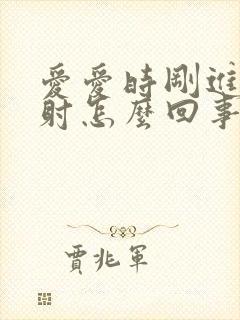 愛愛時剛進
射怎麼回事
賈兆軍